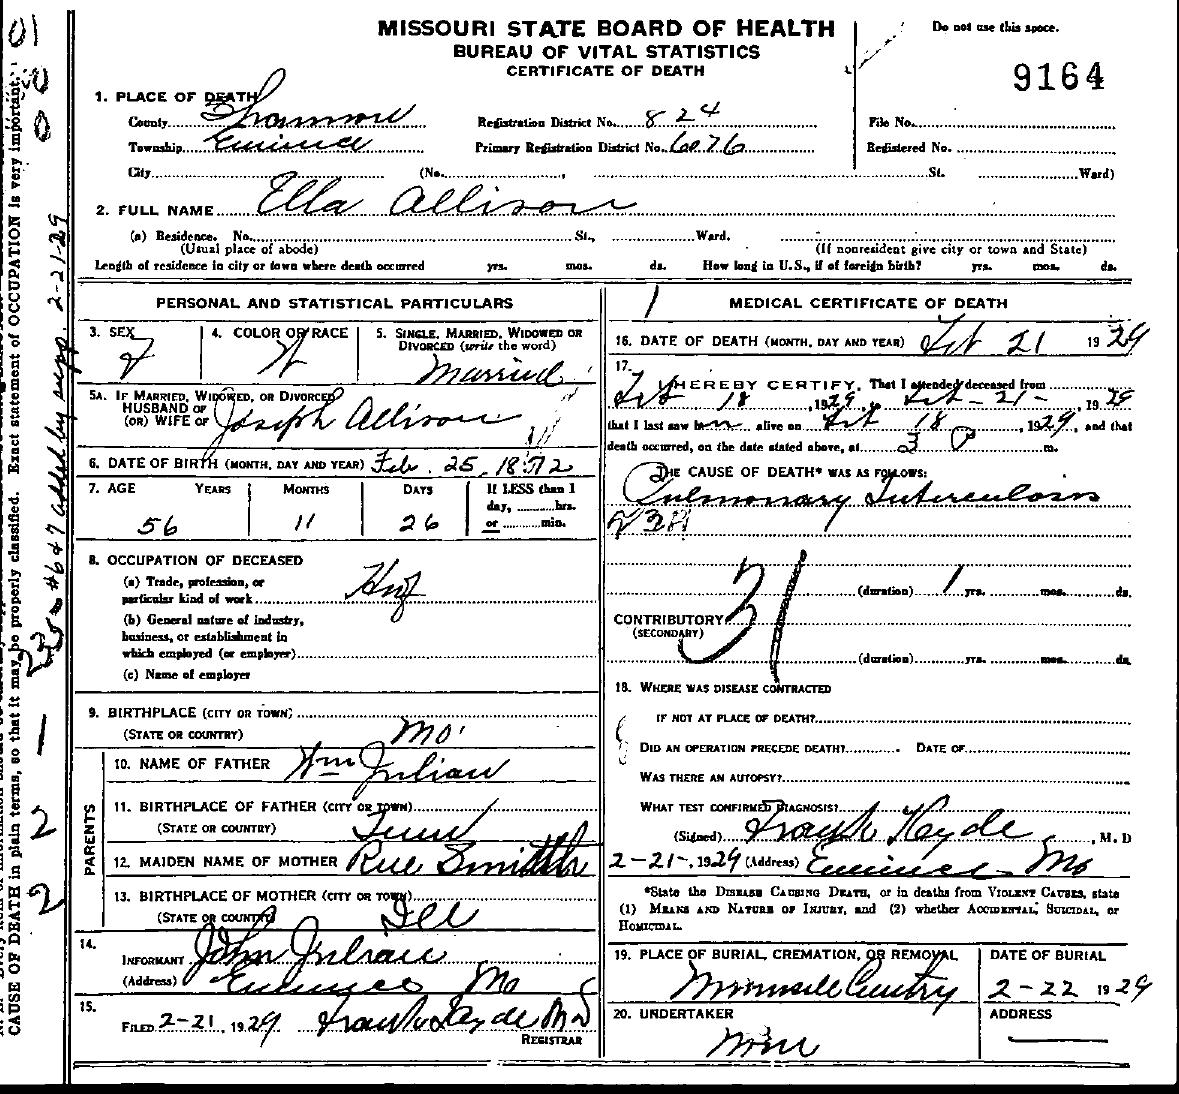 MISSOURI STATE BOARD OF HEALTH
BUREAU OF VITAL STATISTICS
CERTIFICATE OF DEATH
Do not use this space.
9164
1. PLACE OF DEATH
County Shannon Registration District No. 824 File No.
Township Eminence Primary Registration District No. 6076 Registered No.
City (No. , St. Ward)
2. FULL NAME Ella Allison
(a) Residence. No. St., Ward.
(Usual place of abode) (If nonresident give city or town and State)
Length of residence in city or town where death occurred yrs. mos. ds. How long in U.S., if of foreign birth? yrs. mos. ds.
PERSONAL AND STATISTICAL PARTICULARS
3. SEX F
4. COLOR OR RACE W
5. SINGLE, MARRIED, WIDOWED OR DIVORCED (write the word)
Married
5A. IF MARRIED, WIDOWED, OR DIVORCED
HUSBAND OF
(OR) WIFE OF Joseph Allison
6. DATE OF BIRTH (MONTH, DAY AND YEAR) Feb. 25, 1872
7. AGE YEARS MONTHS DAYS If LESS than 1
day, hrs.
56 11 26 or min.
8. OCCUPATION OF DECEASED
(a) Trade, profession, or
particular kind of work
(b) General nature of industry,
business, or establishment in
which employed (or employer)
(c) Name of employer
9. BIRTHPLACE (CITY OR TOWN)
(STATE OR COUNTRY) Mo.
PARENTS
10. NAME OF FATHER Wm Julian
11. BIRTHPLACE OF FATHER (CITY OR TOWN)
(STATE OR COUNTRY) Tenn
12. MAIDEN NAME OF MOTHER Rue Smith
13. BIRTHPLACE OF MOTHER (CITY OR TOWN)
(STATE OR COUNTRY) Ill
14.
INFORMANT John Julian
(Address) Eminence Mo
15.
FILED 2-21, 1929 Frank Hyde MD
REGISTRAR
MEDICAL CERTIFICATE OF DEATH
16. DATE OF DEATH (MONTH, DAY AND YEAR) Feb 21 1929
17.
I HEREBY CERTIFY, That I attended deceased from
Feb 18, 1929, to Feb-21-, 1929
that I last saw h alive on Feb 18, 1929, and that
death occurred, on the date stated above, at 3 P m.
THE CAUSE OF DEATH* WAS AS FOLLOWS:
Pulmonary Tuberculosis
23A
(duration) 1 yrs. mos. ds.
CONTRIBUTORY
(SECONDARY)
31
(duration) yrs. mos. ds.
18. WHERE WAS DISEASE CONTRACTED
IF NOT AT PLACE OF DEATH?
DID AN OPERATION PRECEDE DEATH? DATE OF
WAS THERE AN AUTOPSY?
WHAT TEST CONFIRMED DIAGNOSIS?
(Signed) Frank Hyde, M. D
2-21-, 1929 (Address) Eminence Mo
*State the DISEASE CAUSING DEATH, or in deaths from VIOLENT CAUSES, state
(1) MEANS AND NATURE OF INJURY, and (2) whether ACCIDENTAL, SUICIDAL, or
HOMICIDAL.
19. PLACE OF BURIAL, CREMATION, OR REMOVAL DATE OF BURIAL
2-22 1929
20. UNDERTAKER ADDRESS
CAUSE OF DEATH in plain terms, so that it may be properly classified. Exact statement of OCCUPATION is very important.
#6 & 7 added by supp. 2-21-29